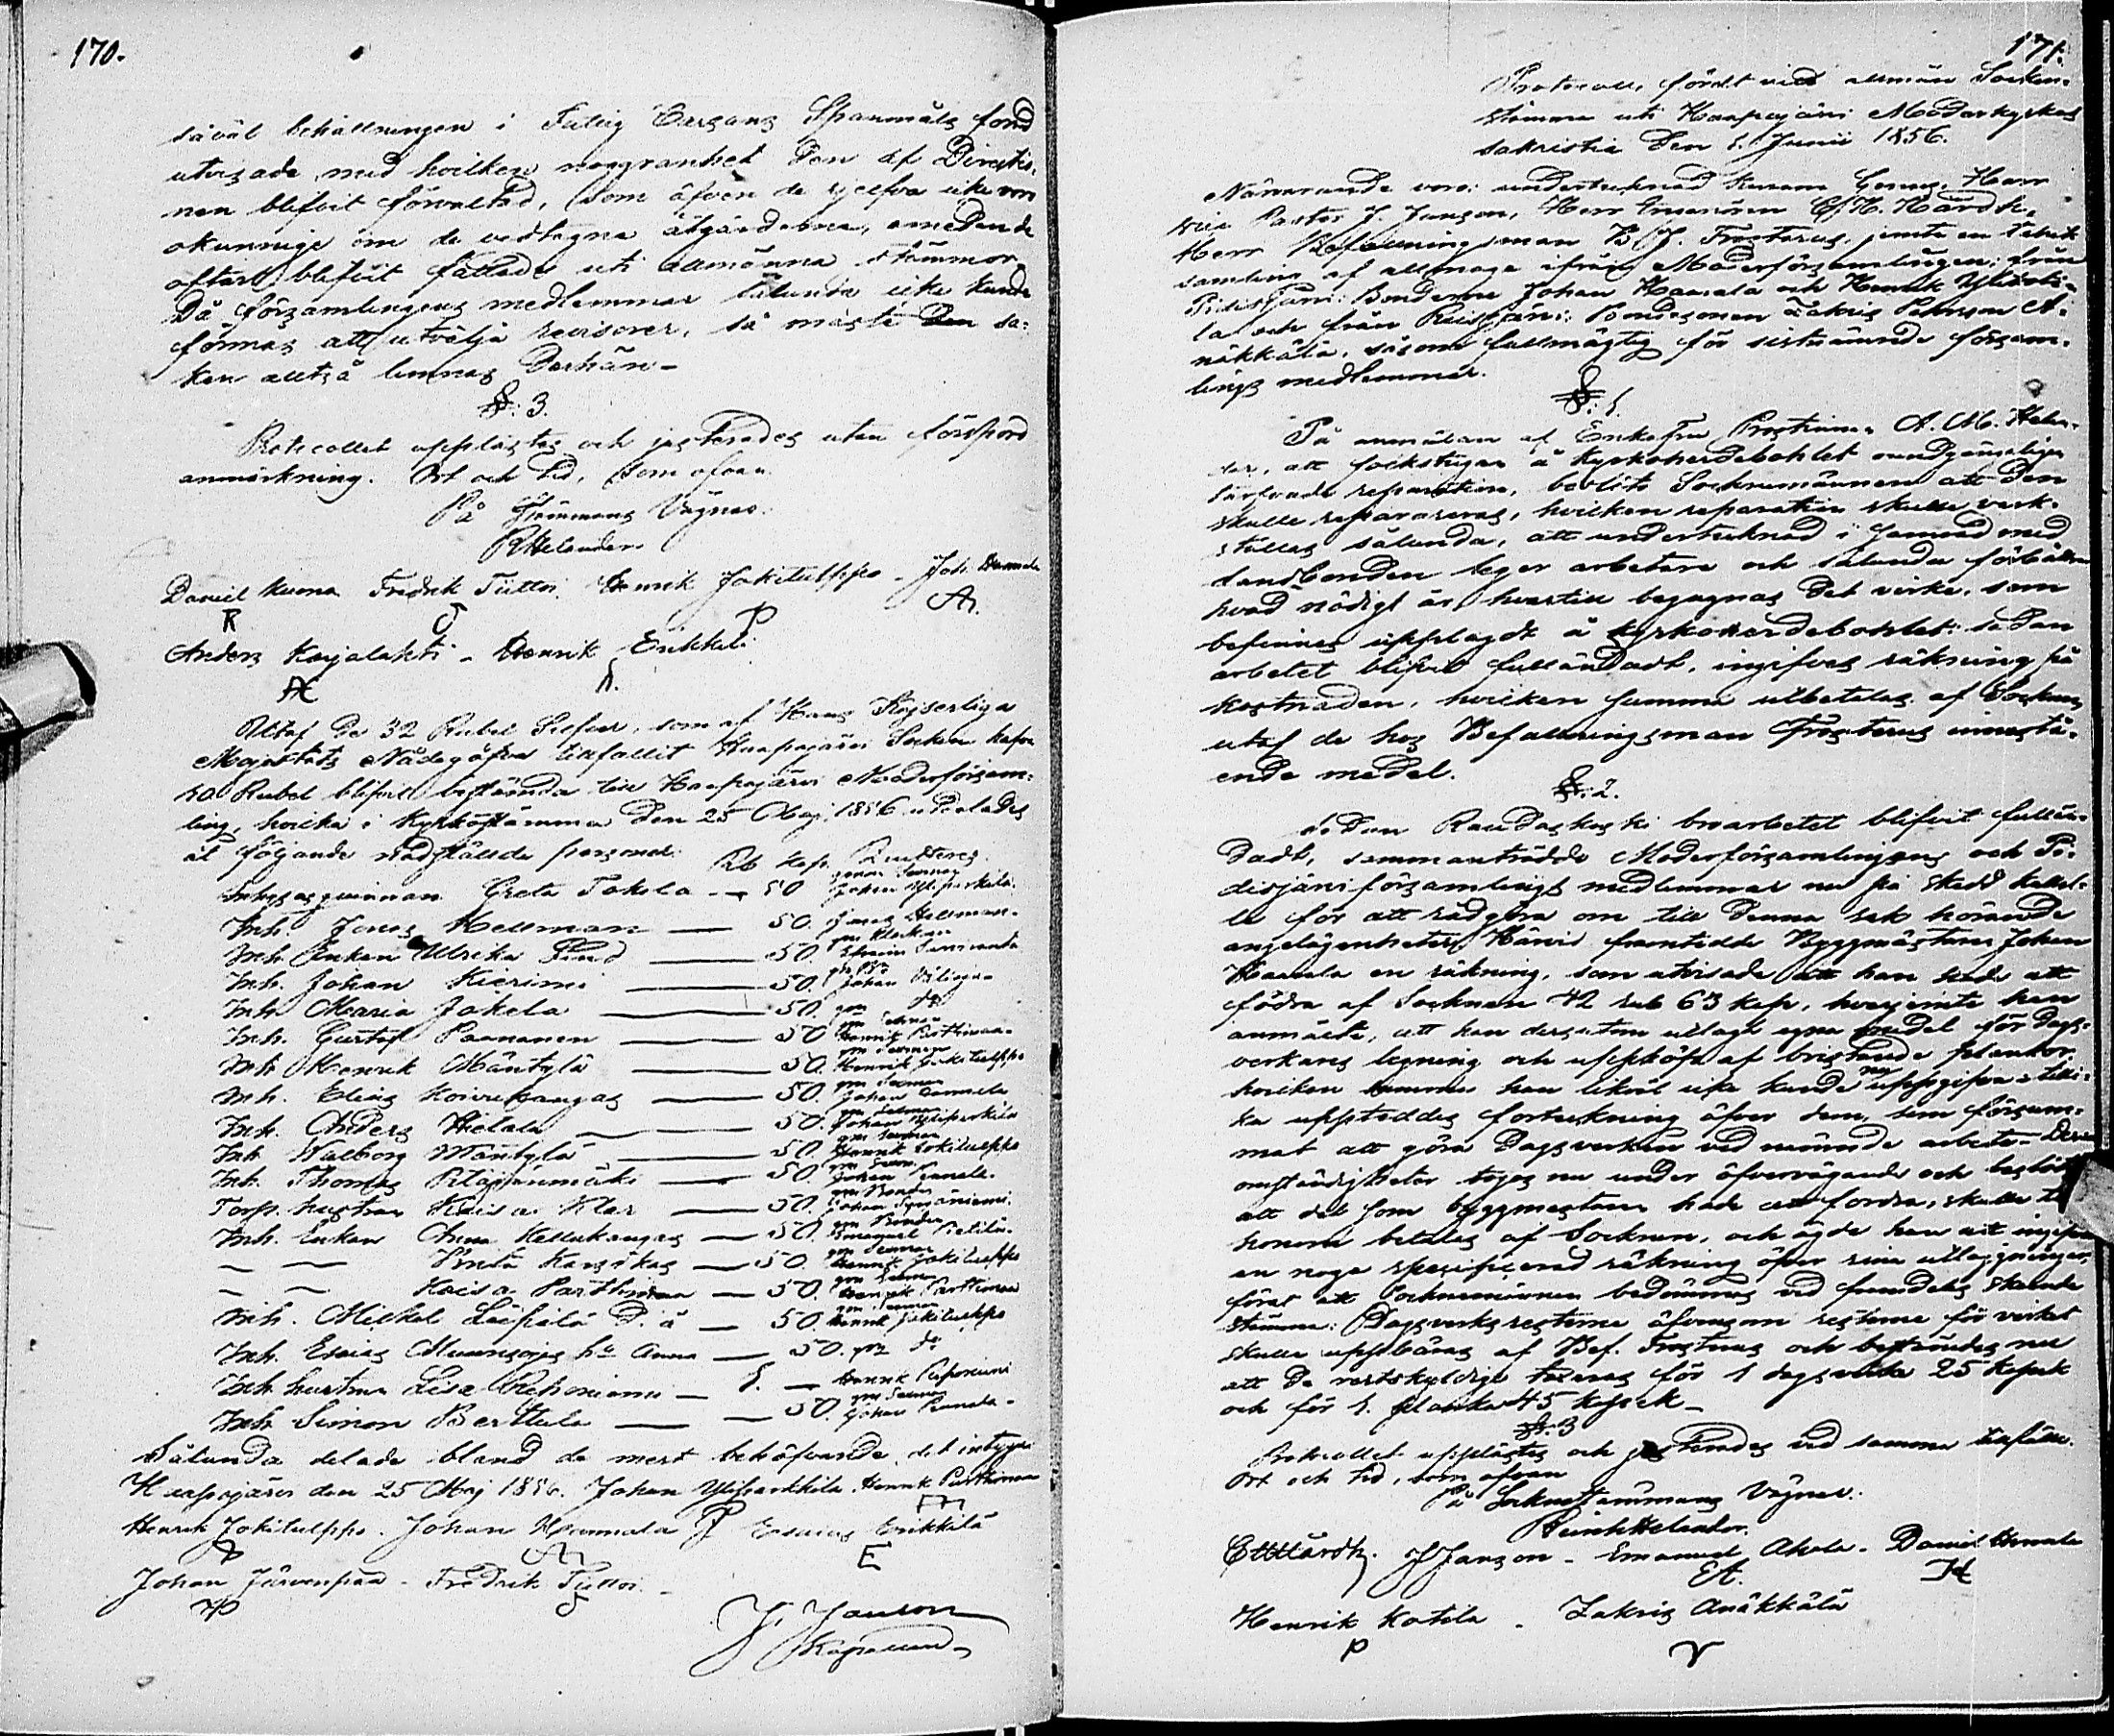 170.
såväl behållningen i Fattig Cassans Spanmåls fond
utvisade, med hvilken noggranhet den af Directio-
nen blifvit förvaltad, som äfven de sjelfva icke voro
okunnige om de vedtagna åtgärderna, emedan de
oftast blifvit fattade uti allmänna stämmor.
Då församlingens medlemmar sålunda icke kunde
förmås att utvälja revisorer, så måste den sa-
ken alltså lemnas derhän-
§: 3.
Protocollet upplästes och justerades utan förspord
anmärkning. Ort och tid, som ofvan.
På Stämmans Vägnar.
RHelander
Daniel Kuona Fredrik Tiitto. Henrik Jokitulppo - Joh. Hannala
R J P A.
Anders Karjalahti - Henrik Erikkilä
AK
Utaf de 32 Rubel Silfver, som af Hans Kejserliga
Majestäts Nådegåfva tillfallit Haapajärvi Socken hafva
10 Rubel blifvit bestämda till Haapajärvi Moderförsam-
ling, hvilka i Kyrkostämma den 25 Maj 1856 utdelades
åt följande nödställda personer: Rb Kop. Quitteras
Inhyses qvinnan Greta Tokola — 50 Johan Yliparkkila.
Inh. Jonas Hellman — 50. Jonas Hellman.
Inh. Enkan Ulrika Lind — 50.
Inh. Johan Kierimo — 50. Johan
Inh. Maria Jokela — 50. gm do
Inh. Gustaf Paananen — 50 Henrik Parthimaa.
Inh. Henrik Mäntylä — 50. Henrik Jokitulppo
Inh. Elias Koivukangas — 50. Johan Hannala
Inh. Anders Hietala — 50. Johan Yliparkkila
Inh. Walborg Mäntylä — 50. Henrik Jokitulppo
Inh. Thomas Pitäjänmäki — 50. Johan
Torp. hustrun Kaisa Klar — 50. Johan
Inh. Enkan Anna Hellakangas — 50. Emanuel Pietilä.
— — Brita Kangskas — 50. Henrik Jokitulppo
— — Kaisa Parthimaa — 50. Henrik Parthimaa
Inh. Mickel Leipälä D. ä — 50. Henrik Jokitulppo
Inh. Esaias h:u Anna — 50. gm do
Inh. hustrun Lisa — 1. — Henrik
Inh. Simon Berttula — 50. Johan
Sålunda delade bland de mest behöfvande, det intyga
Haapajärvi den 25 Maj 1856. Johan Yliparkkila. Henrik Parthimaa
Henrik Jokitulppo. Johan Hannala Esaias Erikkilä
P A E
Johan Järvenpää - Fredrik Tiitto.
J. Janson
Kapellan
171.
Protocoll, fördt vid allmän Socken-
stämma uti Haapajärvi Moderkyrkas
sakristia den 1. Junii 1856.
Närvarande voro: undertecknad Herr
Vice Pastor J. Janson, Herr C. H. Hårdh,
Herr Befallningsman B. J. Frosterus, jemte en talrik
samling af allmoge ifrån Moderförsamlingen; från
Pidisjärvi: Bönderne Johan Haavala och Henrik
la och från Reisjärvi: Bondesonen Zakris A-
näkkälä, såsom fullmägtig för sistnämnde försam-
lings medlemmar.
§: 1.
På anmälan af Enkefru Prostinnan A. M. Helan-
der, att folkstugan å Kyrkoherdebohlet oundgängeligen
tarfvade reparation, beslöto Sockenmännen att den
skulle repareras, hvilken reparation skulle verk-
ställas sålunda, att undertecknad i samråd med
Landbonden leger arbetare och sålunda förbättrar
hvad nödigt är, hvartill begagnas det virke, som
befinnes upplagdt å Kyrkoherdebohlet: sedan
arbetet blifvit fulländadt, ingifves räkning på
kostnaden, hvilken summa utbetalas af Socknen
utaf de hos Befallningsman Frosterus innestå-
ende medel.
§: 2.
Sedan Raudaskoski broarbetet blifvit fullän-
dadt, sammanträdde Moderförsamlingens och Pi-
disjärvi församlings medlemmar nu på skedd kallel-
se för att rådgöra om till denna sak hörande
angelägenheter. Härvid framtedde Byggmästaren Johan
Haavala en räkning, som utvisade att han hade att
fodra af Socknen 42 rub 63 kop, hvarjemte han
anmälte, att han dessutom utlagt egna medel för dags-
verkares legning och uppköp af bristande plankor,
hvilken summa han likväl icke kunde nu uppgifva - tilli-
ka uppteddes forteckning öfver dem, som försum-
mat att göra dagsverken vid nämnde arbete - Dessa
omständigheter togos nu under öfvervägande och beslöts
att det som byggmästaren hade att fordra, skulle till
honom betalas af Socknen, och ägde han att ingifva
en noga specificerad räkning öfver sina utläggningar,
först att Sockenmännen bedömmas vid framdeles skeende
stämma: Dagsverksresterne äfvensom resterne för virket
skulle uppbäras af Bef. Frosterus och bestämdes nu
att de restskyldige betalas för 1 dagsverke 25 kopek
och för 1. planka 45 kopek -
§: 3
Protocollet upplästes och justerades vid samma tillfälle.
Ort och tid, som ofvan
På Sockenstämmans Vägnar.
ReinhHelander.
CHHårdh. JJanson - Emanuel Ahola - Daniel Hannala
EA. H
Henrik Katila - Zakris Anäkkälä
P V